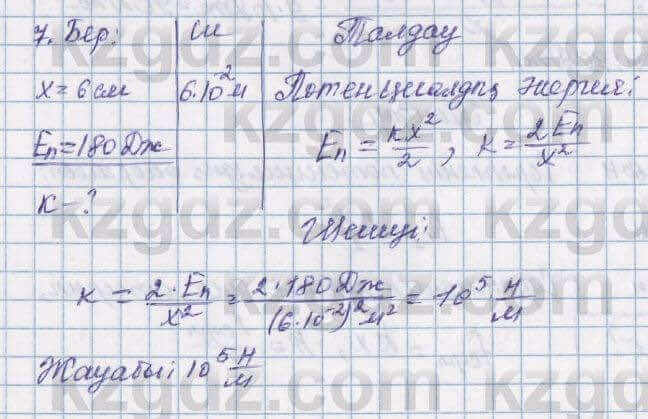 7. Бер:
х = 6 см
Eп = 180 Дж
к - ?
СИ
6·10⁻² м
Талдау
Потенциалдық энергия:
Eп = кх²/2, к = 2Eп/х²
Шешуі:
к = 2·Eп/х² = 2·180 Дж/(6·10⁻²)² м² = 10⁵ Н/м
Жауабы: 10⁵ Н/м